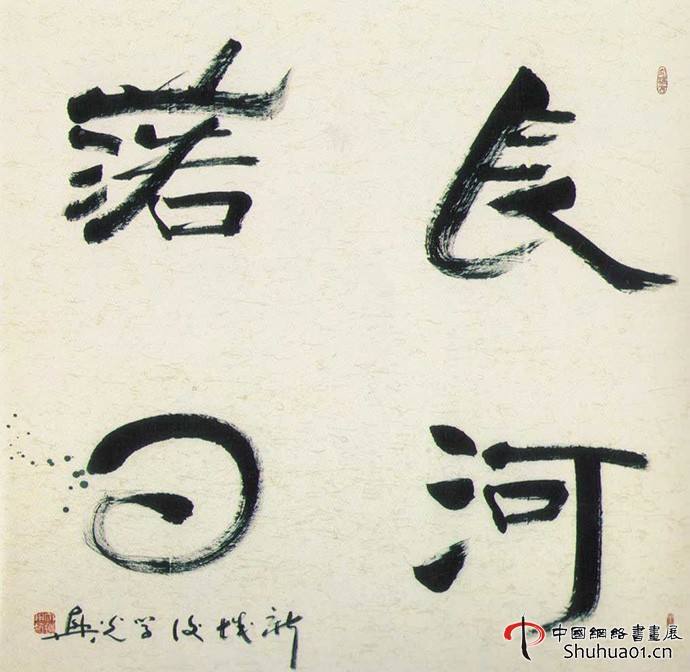 長河
落日
中國網絡書畫展
Shuhua01.cn